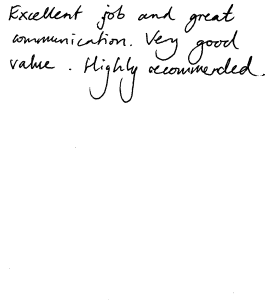 Excellent job and great
communication. Very good
value. Highly recommended.